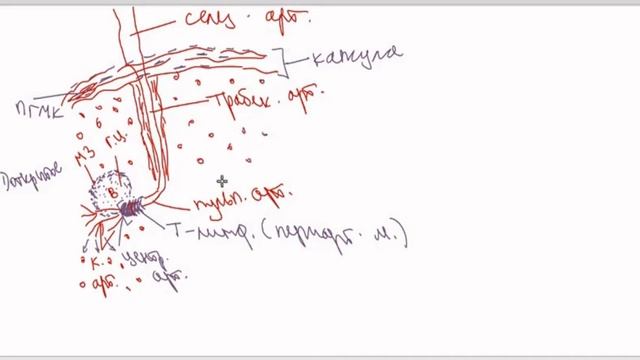 селез. арт.
капсула
ПГМК
трабек. арт.
МЗ
Г.Ц.
В
пульп. арт.
Т-лимф. (периарт. м.)
к.
арт.
центр.
арт.